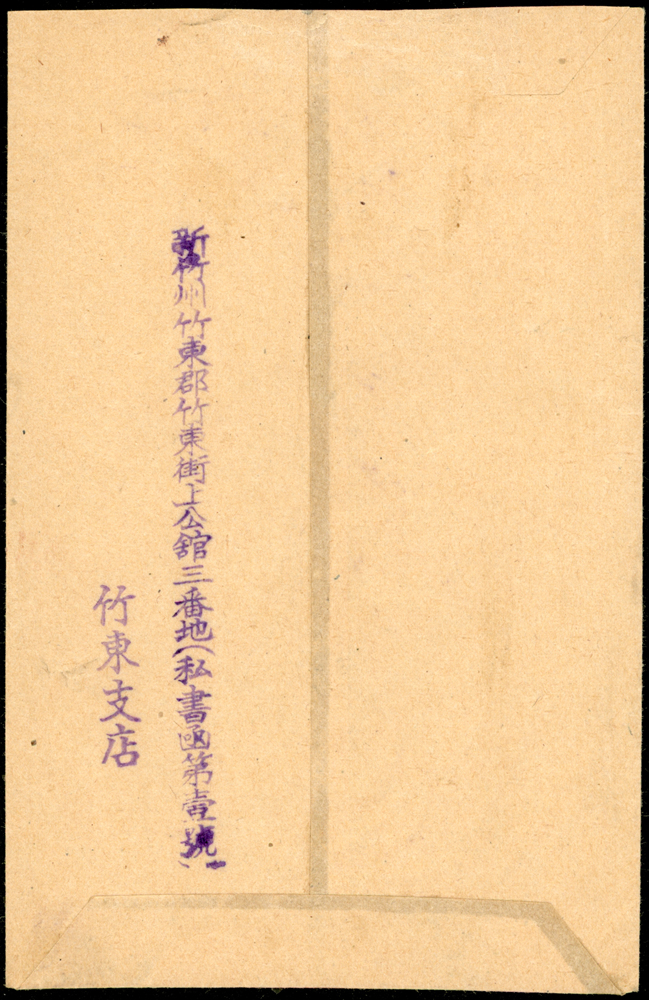 新竹州竹東郡竹東街上公舘三番地(私書凾第壹號)
竹東支店